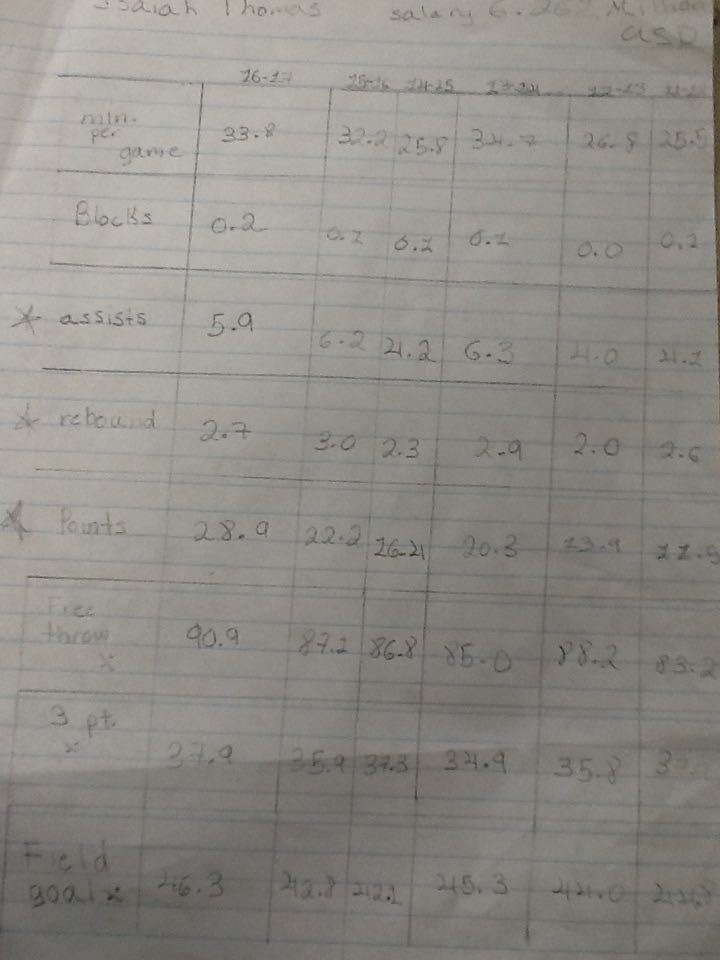 Isaiah Thomas salary 6.262 Million
USD
16-17 15-16 14-15 13-14 12-13 11-12
min. per game 33.8 32.2 25.8 34.7 26.8 25.5
Blocks 0.2 0.1 0.1 0.1 0.0 0.1
assists 5.9 6.2 4.2 6.3 4.0 4.1
rebound 2.7 3.0 2.3 2.9 2.0 2.6
Points 28.9 22.2 16.4 20.3 13.9 11.5
Free throw % 90.9 87.1 86.8 85.0 88.2 83.2
3 pt. % 37.9 35.9 37.3 34.9 35.8
Field goal % 46.3 42.8 42.1 45.3 44.0 44.8